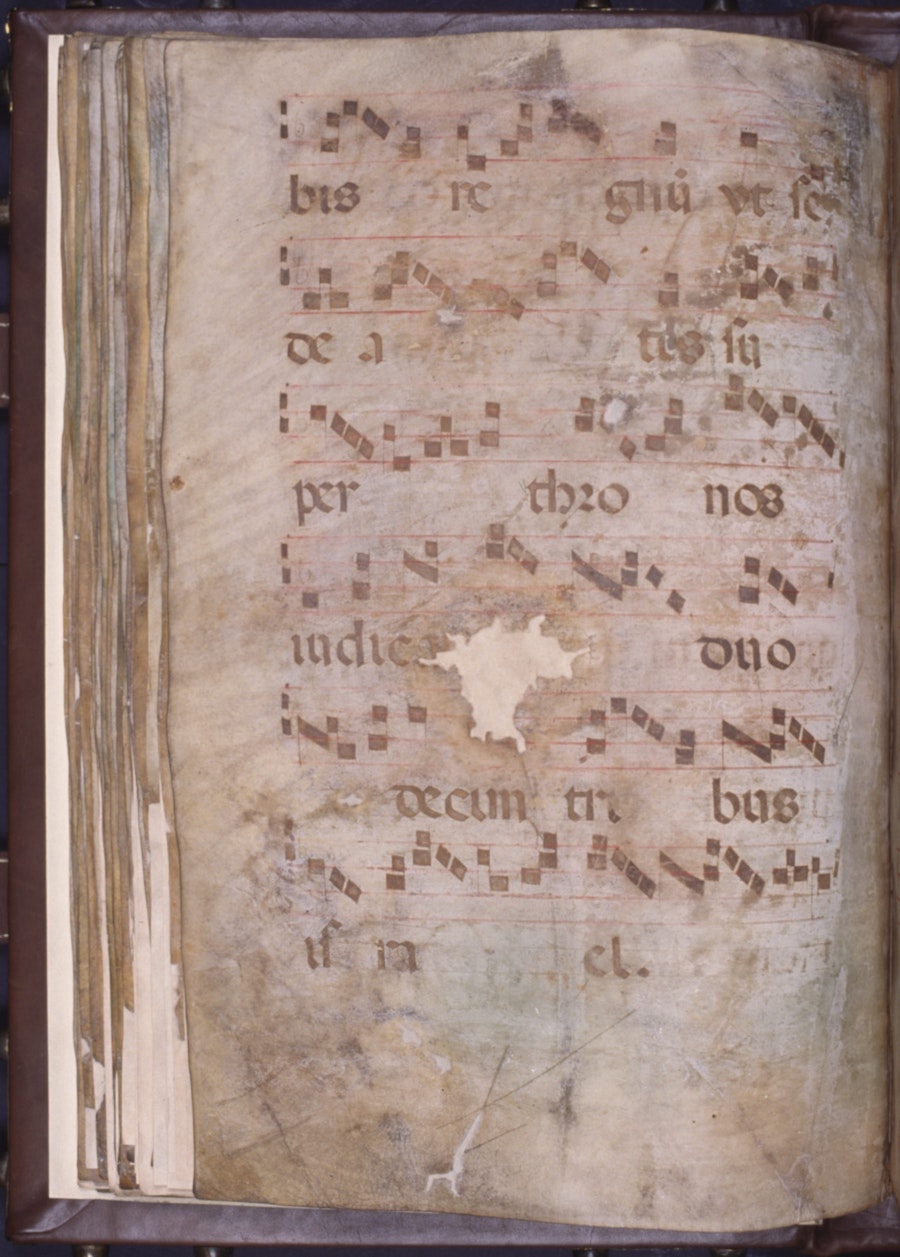 bis re gnũ vt se
de a tis su
per thro nos
iudica duo
decim tri bus
iſ ra el.